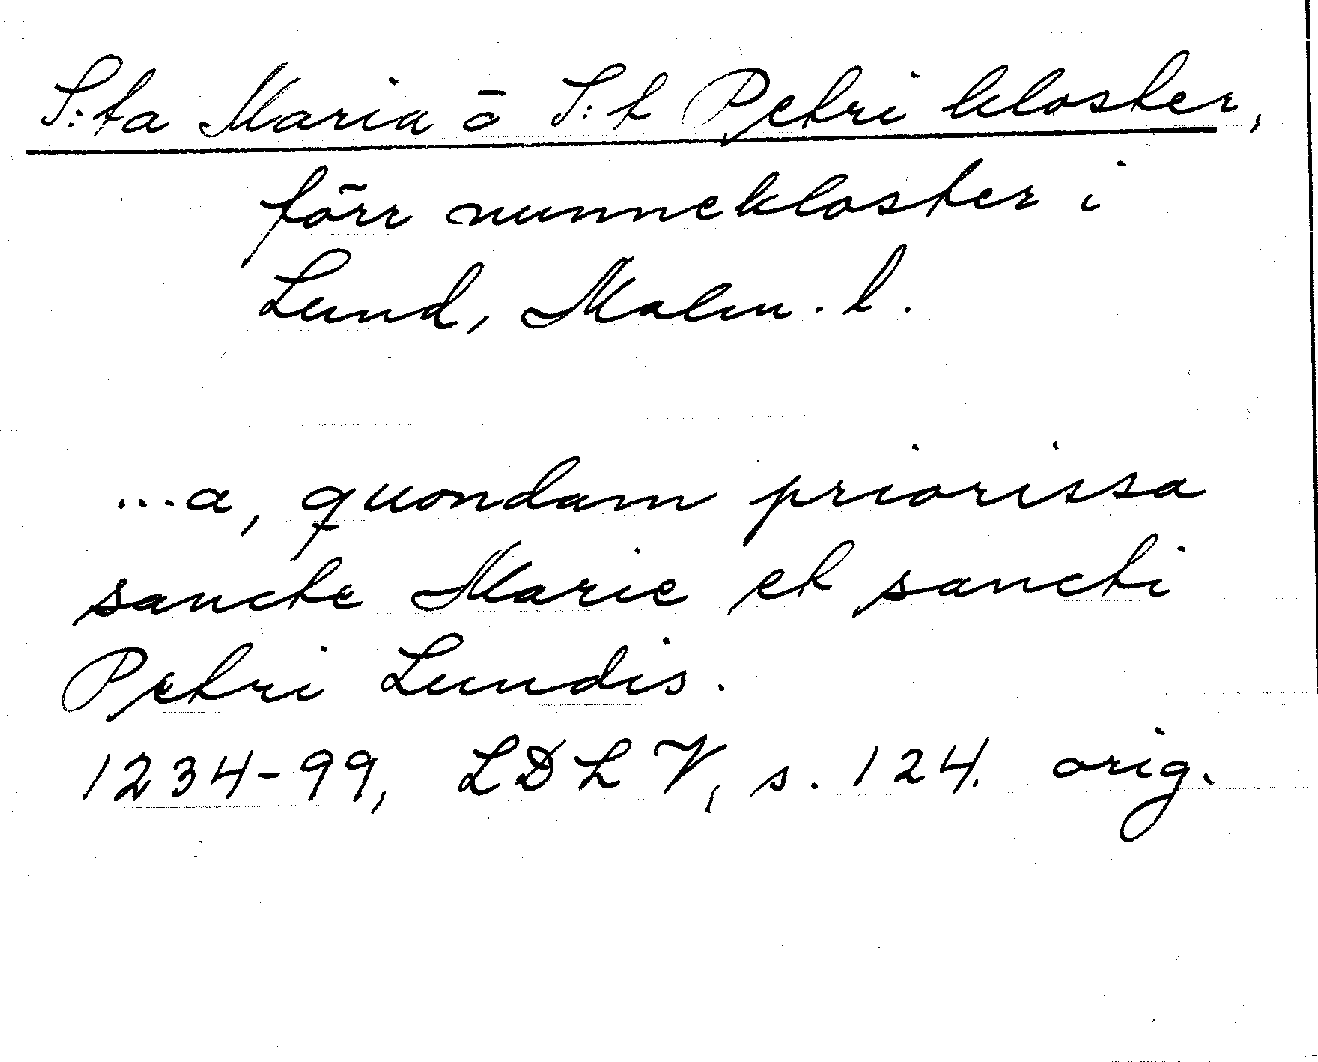 S:ta Maria o S:t Petri kloster,
förr nunnekloster i
Lund, Malm. l.
...a, quondam priorissa
sancte Marie et sancti
Petri Lundis.
1234-99, LDL V, s. 124. orig.